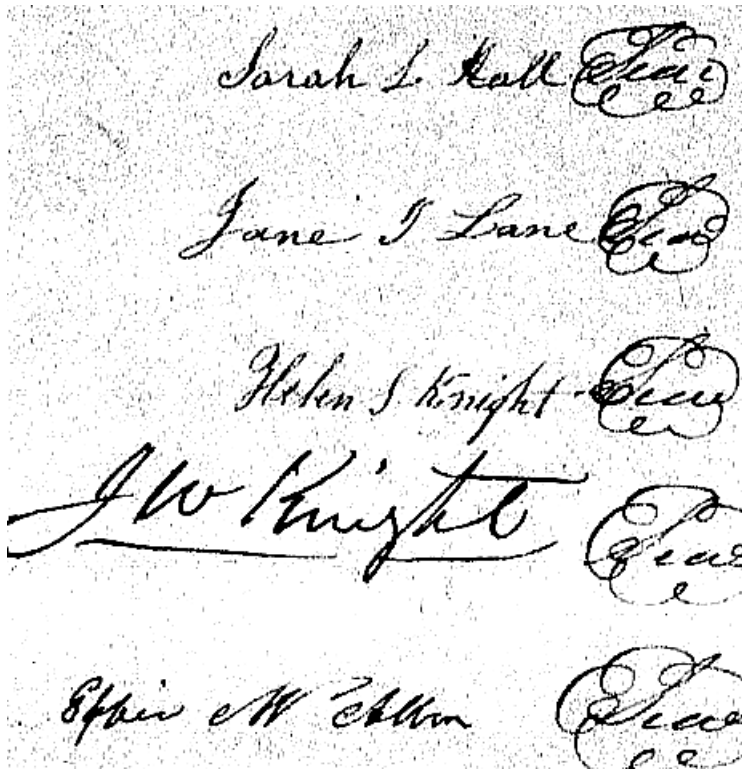 Sarah L Hall Seal
Jane T Lane Seal
Helen S Knight Seal
J W Knight Seal
Effie M Allen Seal